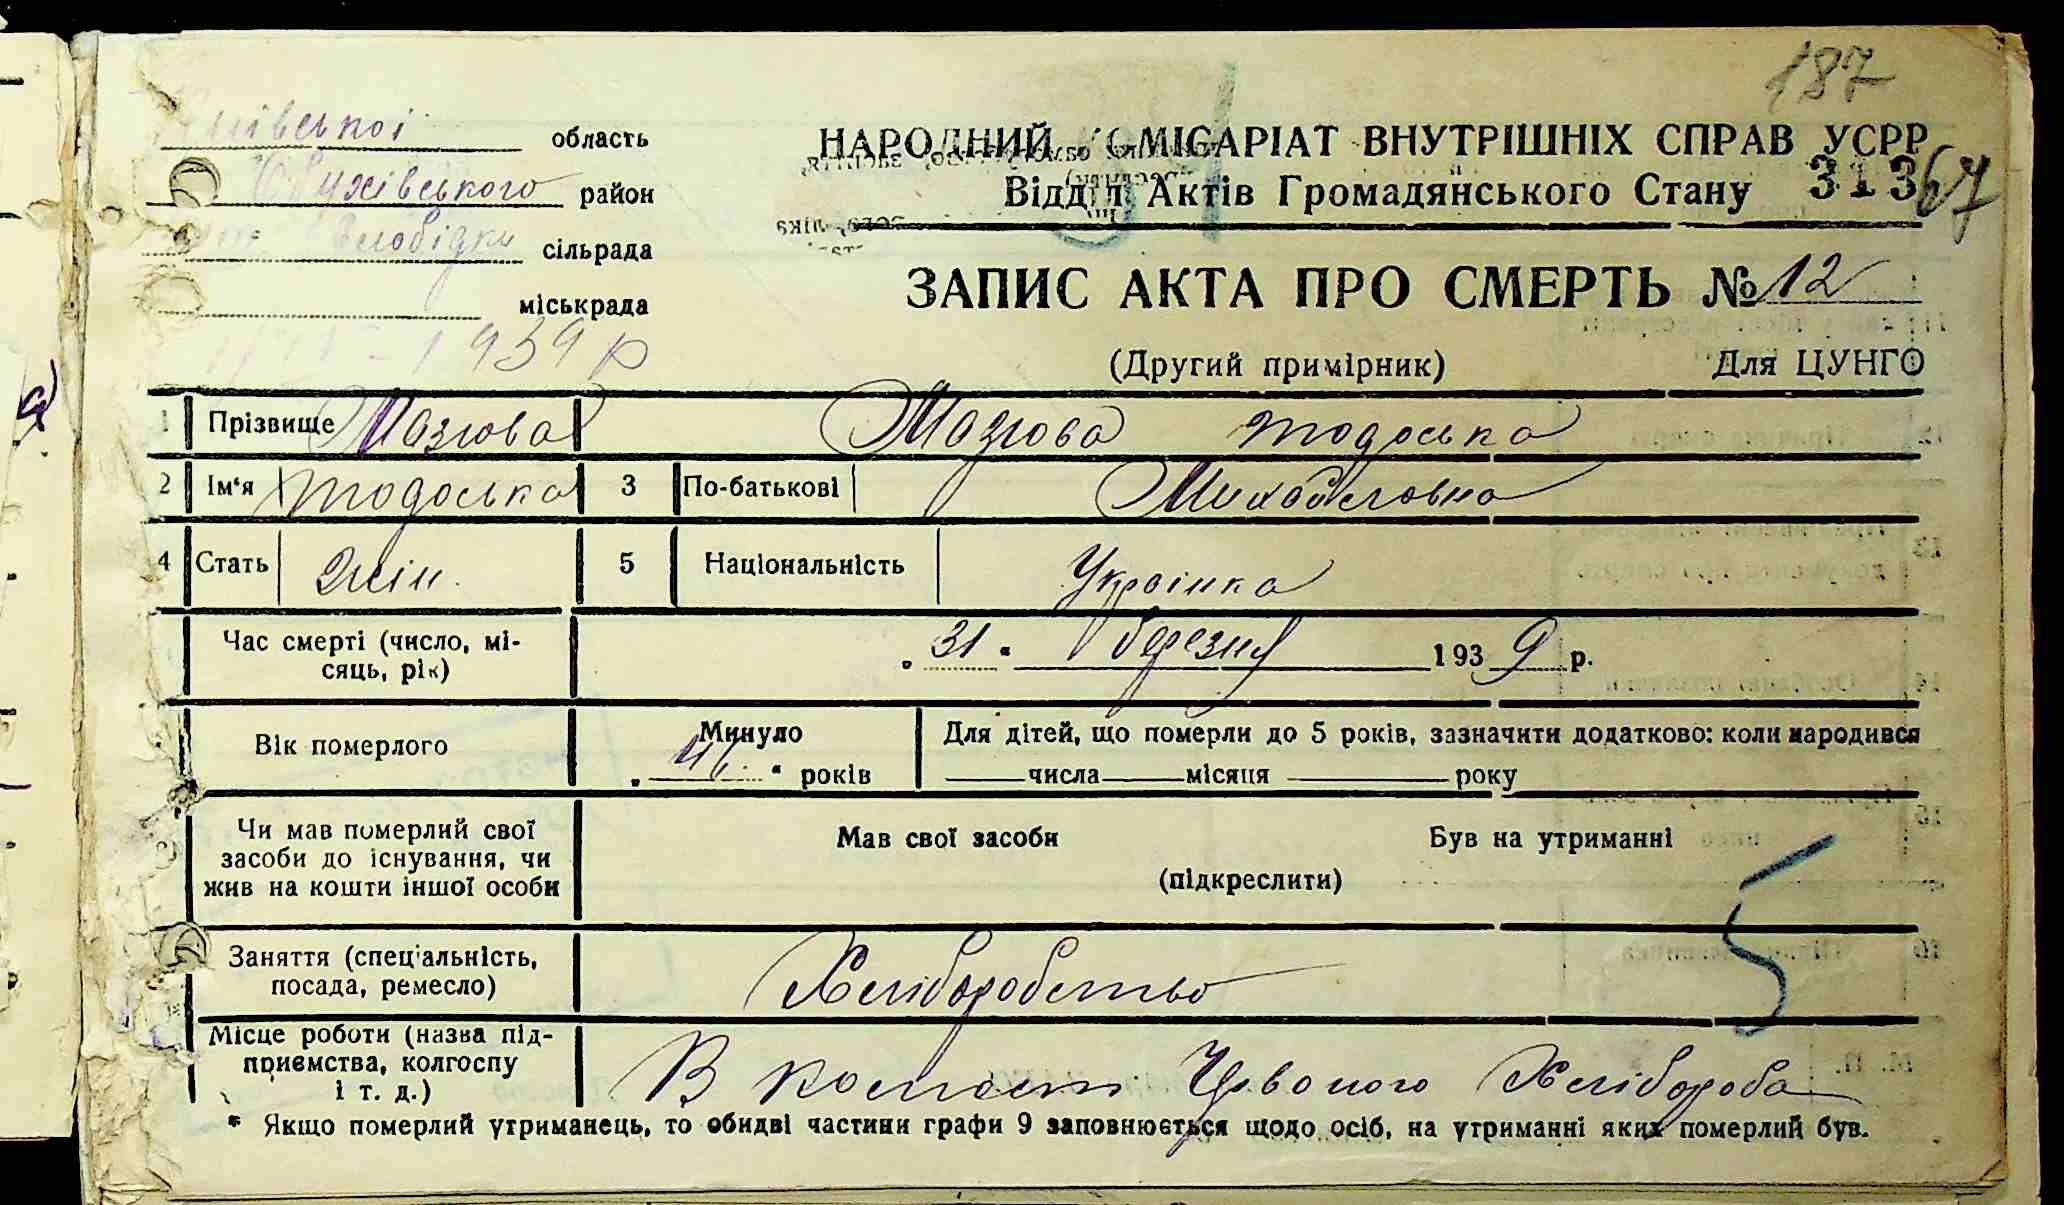 187
Київської область
Обухівського район
слобідки сільрада
міськрада
1939 р
НАРОДНИЙ КОМІСАРІАТ ВНУТРІШНІХ СПРАВ УСРР
Відділ Актів Громадянського Стану 313 67
ЗАПИС АКТА ПРО СМЕРТЬ № 12
(Другий примірник) Для ЦУНГО
1 Прізвище Мазюва Мазюва Тодоська
2 Ім'я Тодоська 3 По-батькові Михайловна
4 Стать Жін. 5 Національність Українка
Час смерті (число, мі-
сяць, рік)
„31" березня 1939 р.
Вік померлого
Минуло
„46." років
Для дітей, що померли до 5 років, зазначити додатково: коли народився
числа місяця року
Чи мав померлий свої
засоби до існування, чи
жив на кошти іншої особи
Мав свої засоби Був на утриманні
(підкреслити)
Заняття (спеціальність,
посада, ремесло)
Хліборобство
Місце роботи (назва під-
приємства, колгоспу
і т. д.)
В колгоспі Червоного Хлібороба
* Якщо померлий утриманець, то обидві частини графи 9 заповнюється щодо осіб, на утриманні яких померлий був.